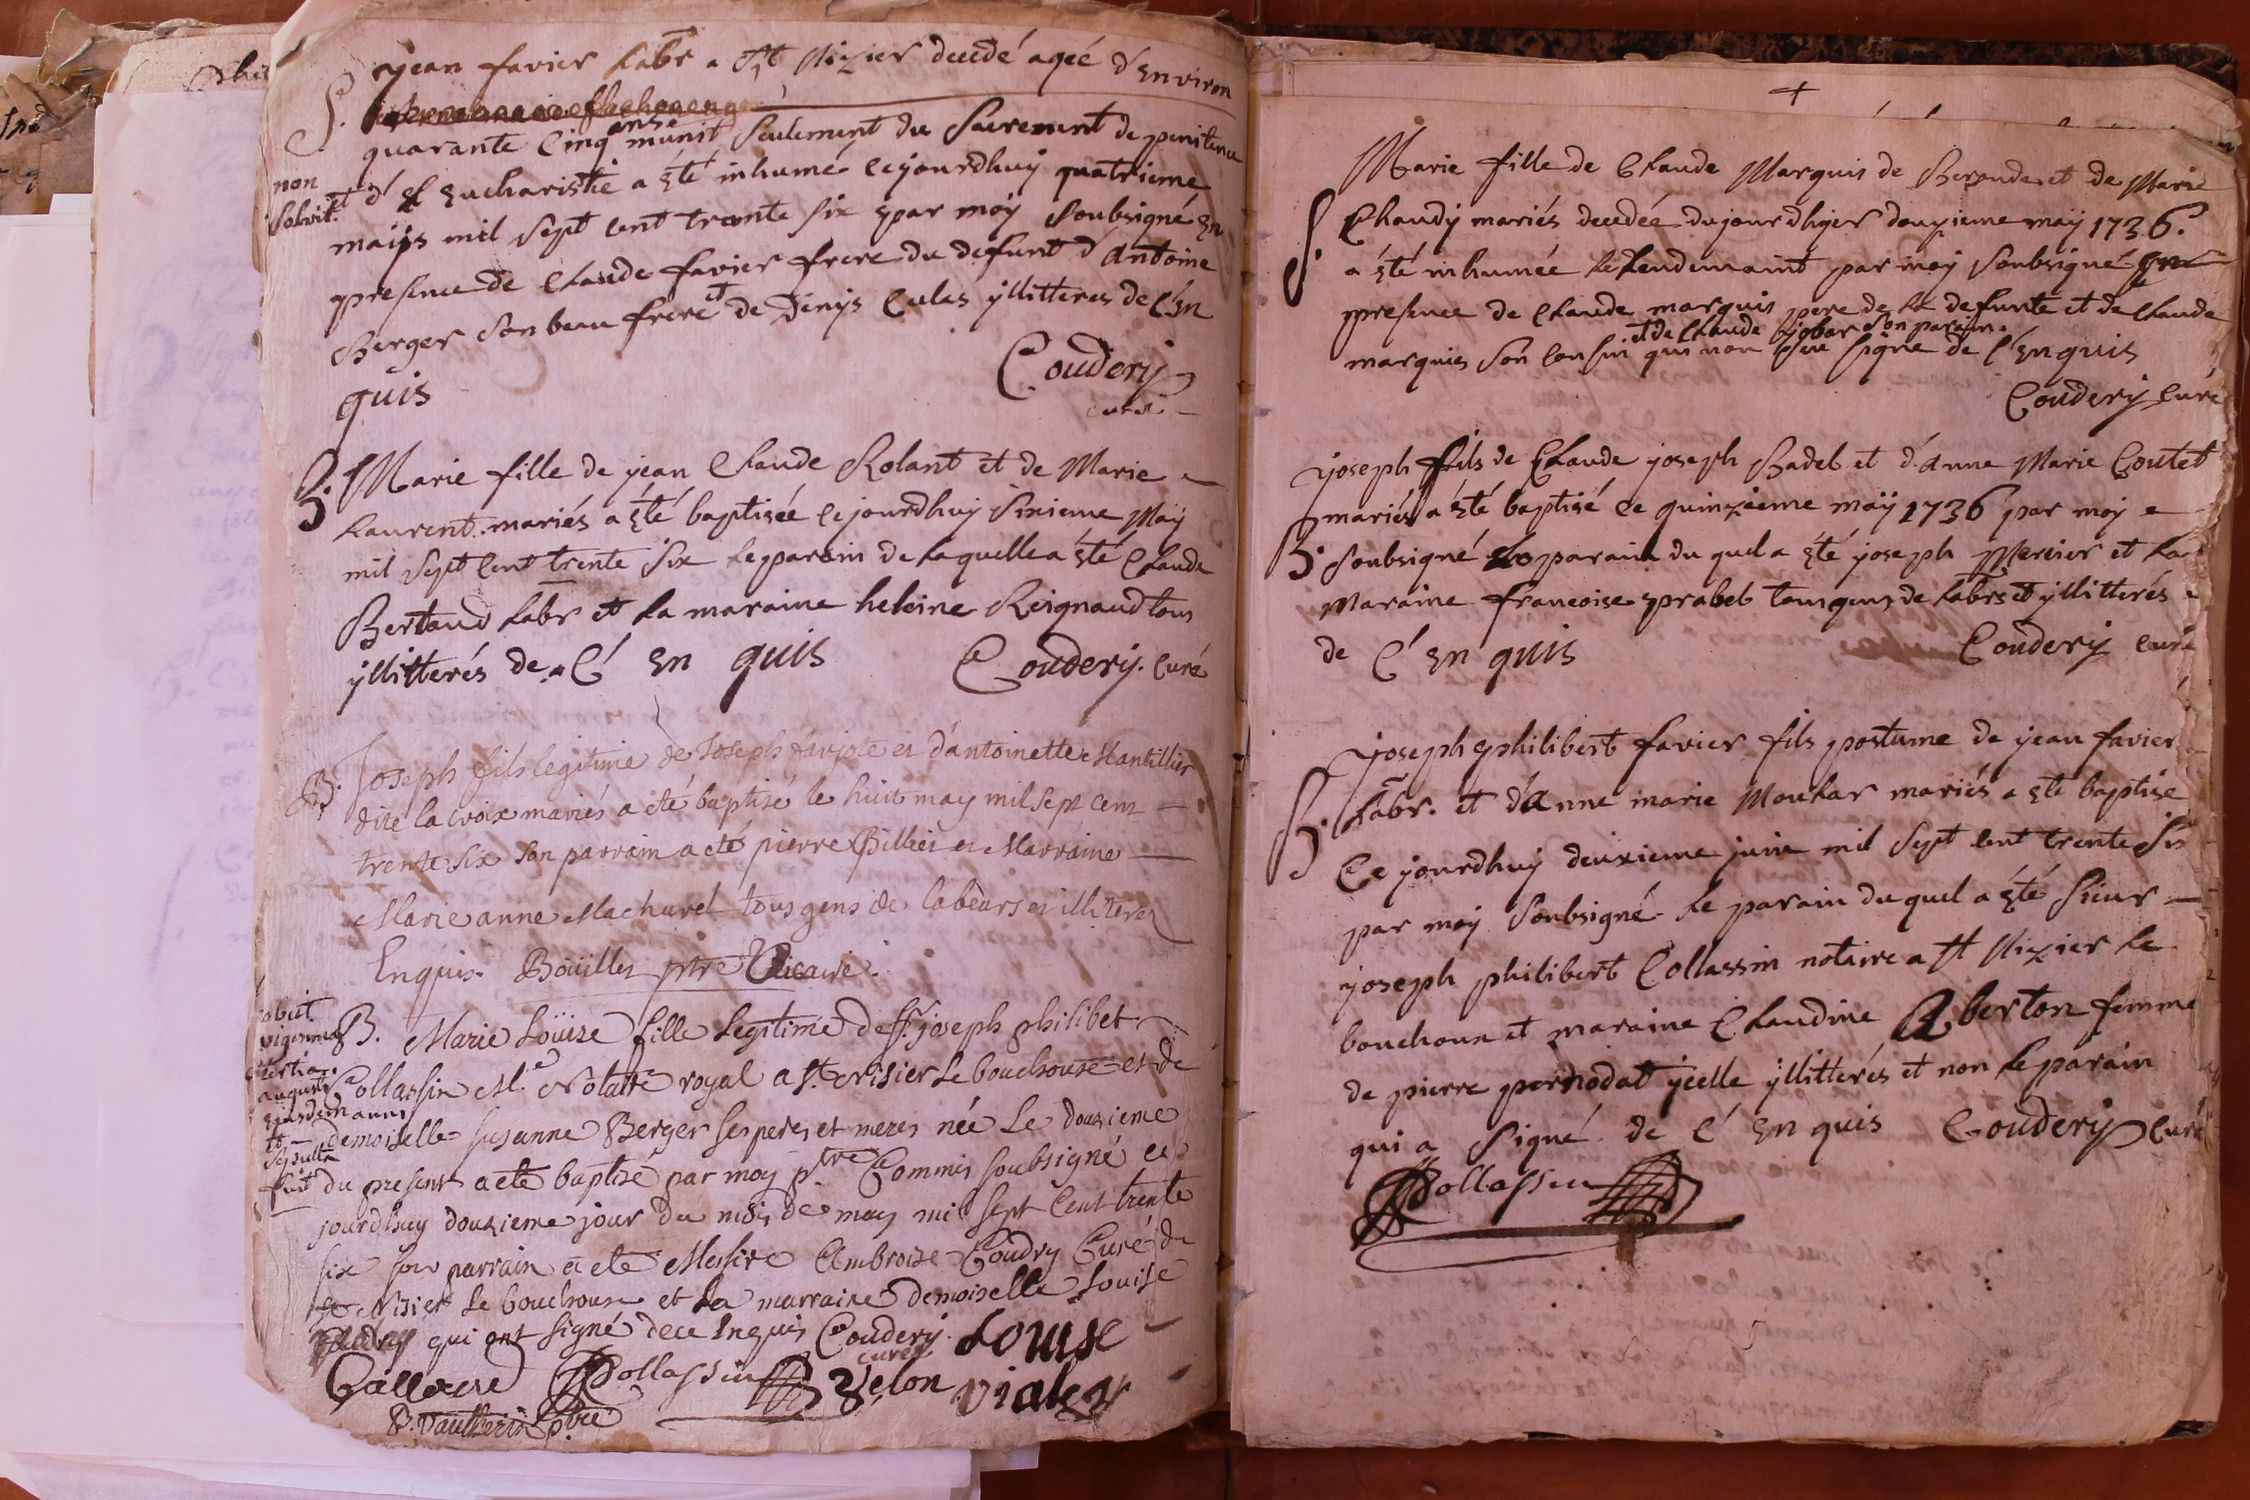 jean favier labr a St Nizier decedé ageé d'environ
S.
quarante cinq ans munit seulement du sacrement de penitence
non
solvit.
et d'el eucharistie a été inhumé cejourdhuy quatrieme
maijs mil sept cent trente six par moy soubsigné en
presence de claude favier frere du defunt d'antoine
Berger son beau frere et de Denys Culas yllitteres de c'en
quis
Coudery
curé
B. Marie fille de jean claude Rolant et de Marie
Laurent mariés a été baptiseé cejourdhuy sixieme May
mil sept cent trente six le parain de laquelle a été claude
Bertaud labr et la maraine heleine Reignaud tous
yllitterés de c' en quis Coudery. curé
B. Joseph fils legitime de Joseph farjote et d'antoinette Mantillier
dite la croix mariés a été baptisé le huit may mil sept cent
trente six son parrain a eté pierre Billiet et Marraine
Marie anne Machurel tous gens de labeurs et illiteres
Enquis. Boüillet ptre vicaire.
obiit
vigesima
tertia
augusti
ejusdem anni
et
sepulta
fuit
B. Marie Loüise fille legitime de Sr. joseph philibet
Collassin Me. Notaire royal a St. nisier le bouchoux et de
demoiselle susanne Berger ses peres et meres née Le douzieme
du present a ete baptisé par moy ptre Commis soubsigné ce
jourdhuy douzieme jour du mois de may mil sept Cent trente
six son parrain a ete Messire Ambroise Coudry Curé de
St Nisier le bouchoux et La marraine demoiselle Louise
qui ont signé dece Enquis Coudery
curé
Louise
Collassin
Velon
vialet
B. Vautherin ptre
+
Marie fille de Claude Marquis de et de Marie
S. Chaudy mariés decedée dujourdhyer douzieme maÿ 1736.
a été inhumée le lendemaint par moy soubsigné en
presence de claude marquis pere de la defunte et de claude
et de claude jobar son parain.
marquis son cousin qui non sceu signe de c'en quis
Coudery curé
joseph fils de Claude joseph Badel et d'anne Marie Coutet
mariés a été baptisé ce quinzieme maÿ 1736 par moy
B. soubsigné le parain du quel a été joseph Mercier et la
maraine francoise prabel tous gens de labrs et yllitterés
de c' en quis Coudery curé
joseph philibert favier fils postume de jean favier
B. Labr. et d'anne marie Moukar mariés a été baptisé
Ce jourdhuy deuxieme juin mil sept cent trente six
par moy soubsigné le parain du quel a été sieur
joseph philibert Collassin notaire a St Nizier le
bouchoux et maraine claudine Aberton femme
de pierre pernodat ycelle yllitterés et non le parain
qui a signé de c' en quis Coudery curé
Collassin